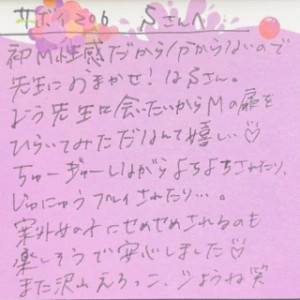 サボイ206 Sさんへ
初M性感だから分からないので
先生におまかせ！なSさん。
よう先生に会いたいからMの扉を
ひらいてみただなんて嬉しい♡
ちゅーぎゅーしながらよちよちされたり、
じゅにゅうフルイされたり…。
案外女の子にせめせめされるのも
楽しそうで安心しました♡
また沢山えろっこ、しようね笑